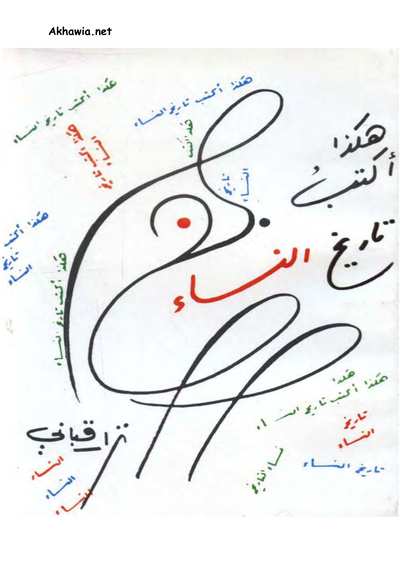 Akhawia.net
هكذا أكتب تاريخ النساء
هكذا أكتب تاريخ النساء
هكذا
أكتبُ
تاريخ النساء
هكذا أكتب
تاريخ
النساء
هكذا أكتب
تاريخ
النساء
هكذا أكتب تاريخ النساء
هكذا
هكذا أكتب تاريخ النساء
تاريخ
النساء
تاريخ النساء
نساء التاريخ
نزار قباني
النساء
النساء
النساء